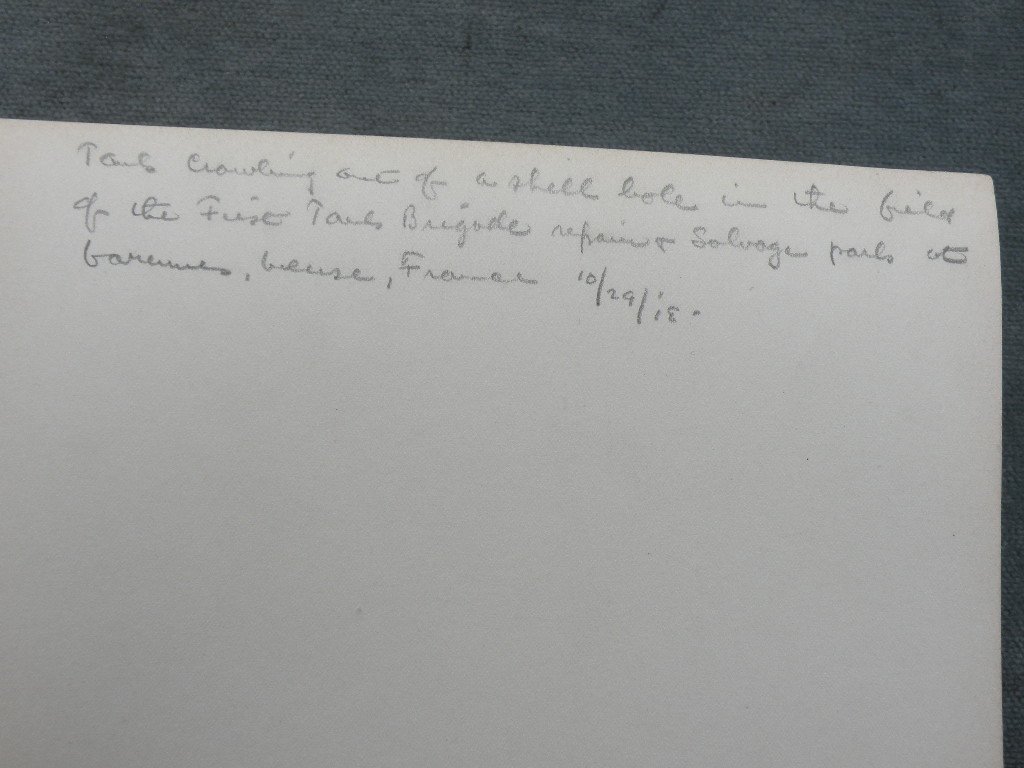 Tank crawling out of a shell hole in the field
of the First Tank Brigade repair & Salvage park at
Varennes, Meuse, France 10/29/18.